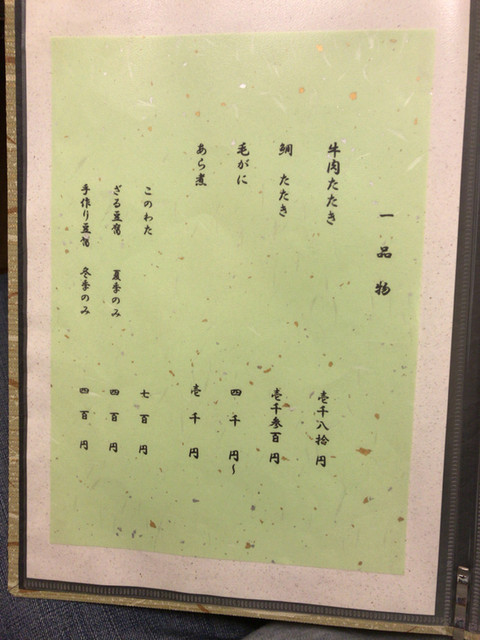 一品物
牛肉たたき 壱千八拾円
鯛 たたき 壱千参百円
毛がに 四千円～
あら煮 壱千円
このわた 七百円
ざる豆腐 夏季のみ 四百円
手作り豆腐 冬季のみ 四百円